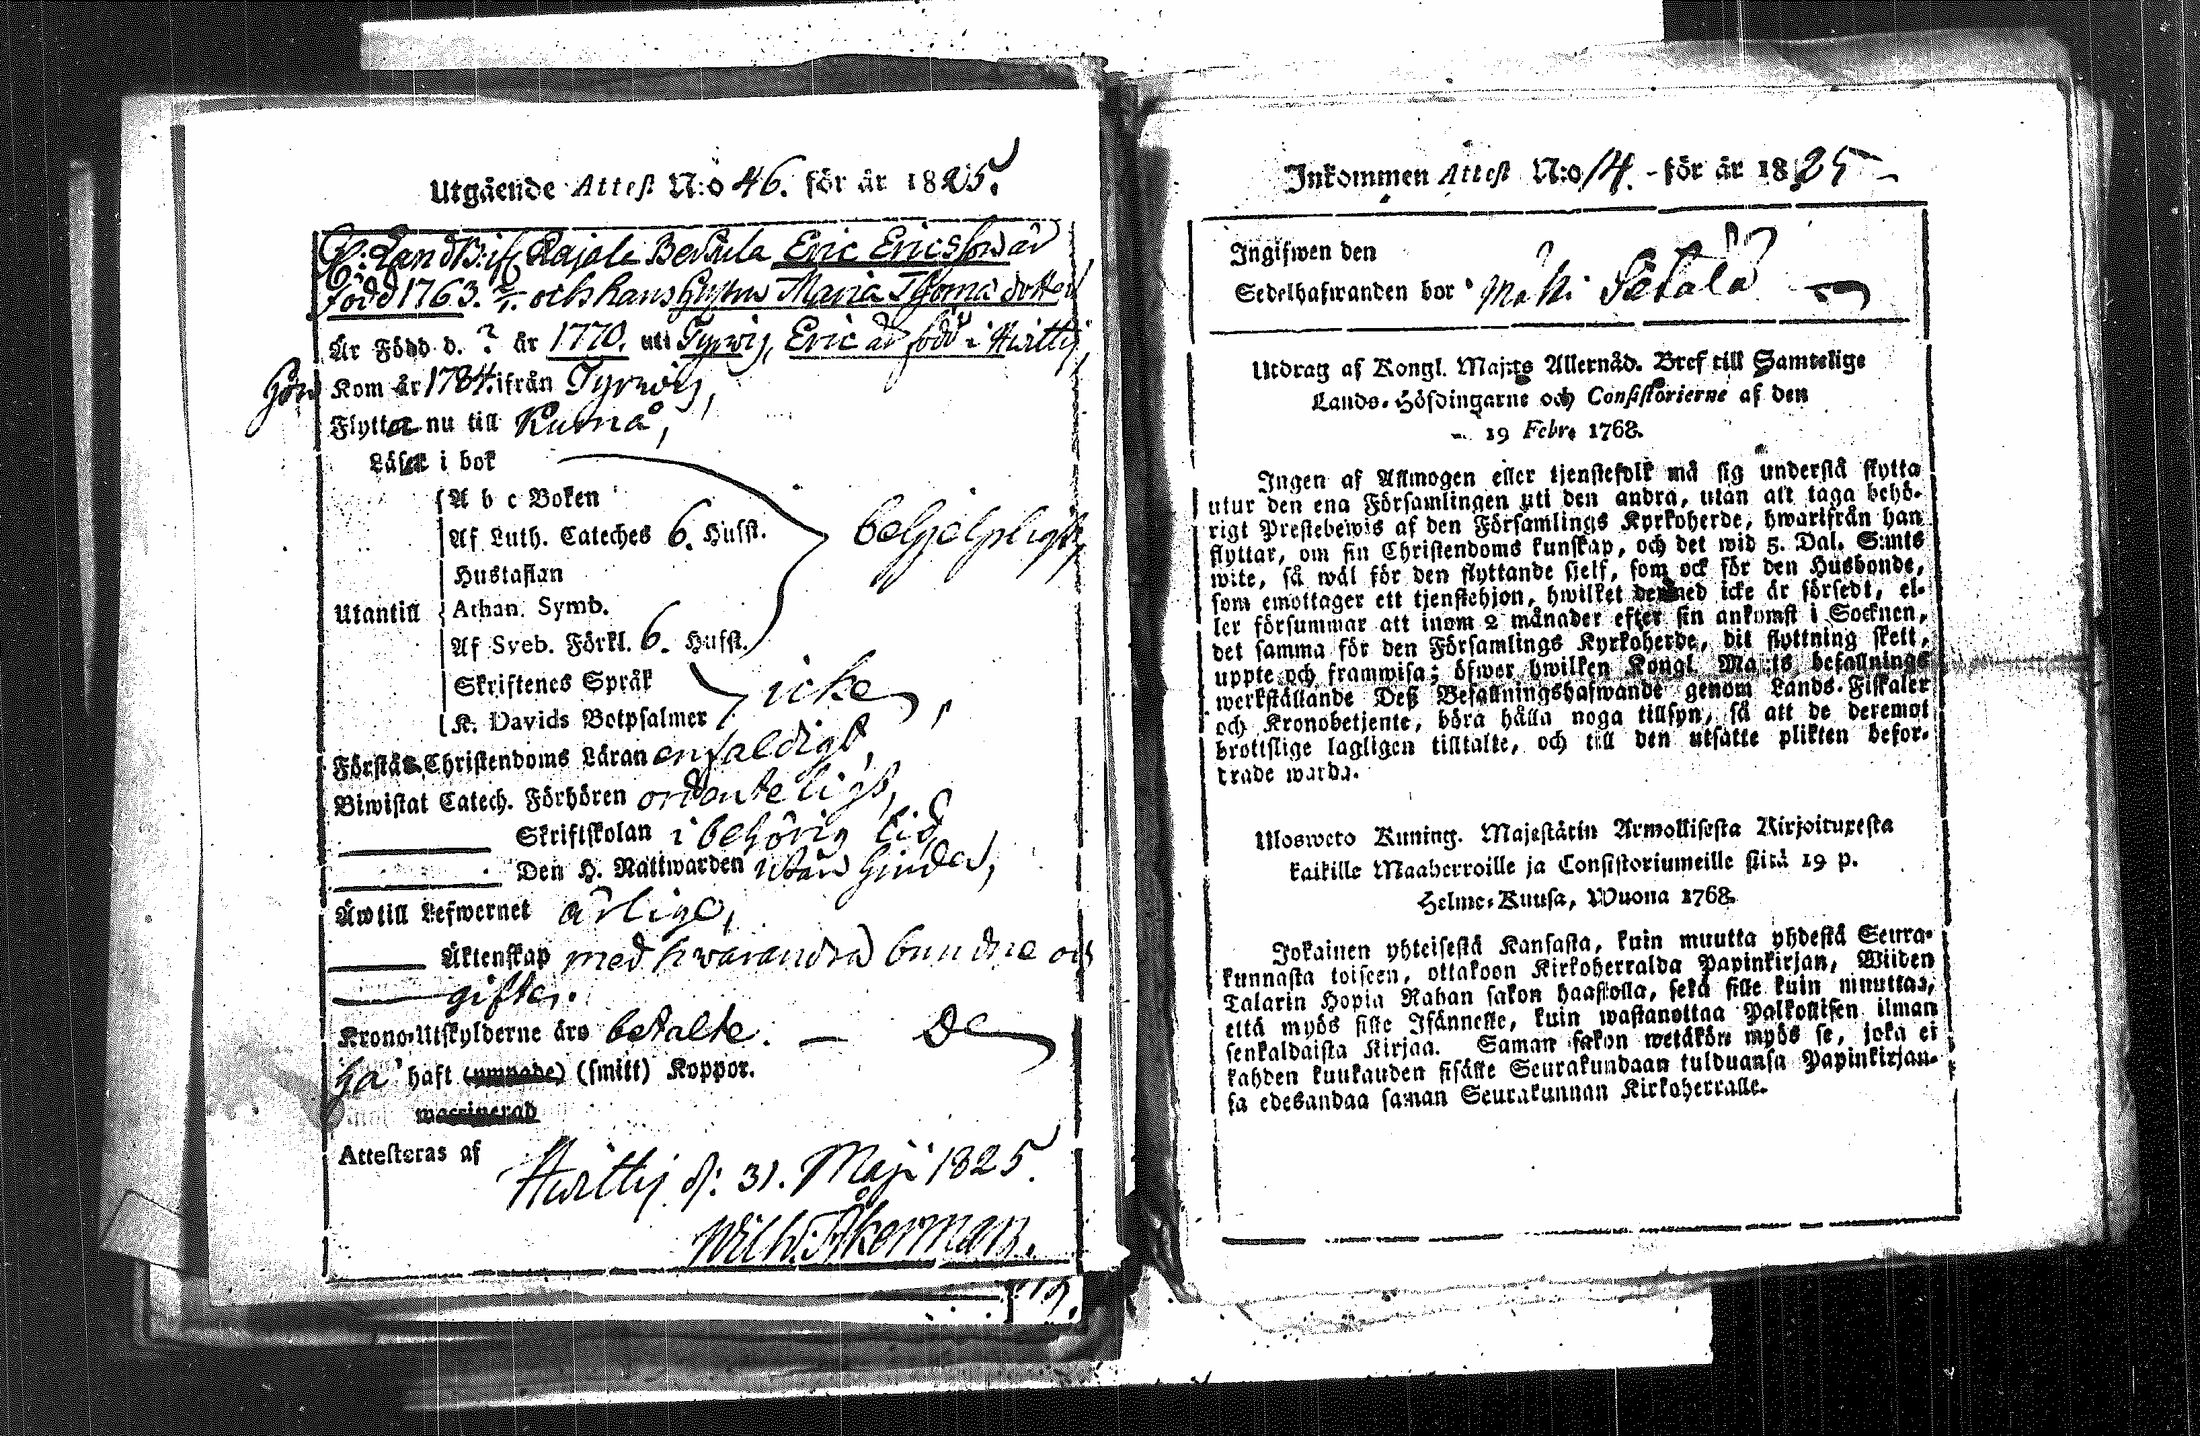 Utgående Attest N:o 46. för år 1825.
Eric Ericsson är
född 1763. och hans Hustru Maria Thomæ dotter
Är Född d. ? år 1770. uti Tyrwis, Eric är född i Huittis
Hon Kom år 1784. ifrån Tyrwis,
Flyttar nu till Kumå,
Läser i bok
A b c Boken
Af Luth. Cateches 6. Hufst. behjelpligt,
Hustaflan
Utantill Athan. Symb.
Af Sveb. Förkl. 6. Hufst.
Skriftenes Språk
icke,
K. Davids Botpsalmer
Förstå Christendoms Läran enfaldigt,
Biwistat Catech. Förhören ordenteligt,
Skriftskolan i behörig tid
Den H. Nattwarden utan hinder,
Äro till Lefwernet ärlige,
Äktenskap med hwarandra bundne och
gifte.
Krono-Utskylderne äro betalte. — De
ha haft (ympade) (smitt) Koppor.
waccinerad
Attesteras af
Huittis d: 31. Maji 1825.
Wilh. Åkerman.
Inkommen Attest N:o 14. - för år 1825 -
Ingifwen den
Sedelhafwanden bor Setälä
Utdrag af Kongl. Maj:ts Allernåd. Bref till Samtelige
Lands-Höfdingarne och Consistorierne af den
19 Febr. 1768.
Ingen af Allmogen eller tjenstefolk må sig understå flytta
utur den ena Församlingen uti den andra, utan att taga behö-
rigt Prestebewis af den Församlings Kyrkoherde, hwarifrån han
flyttar, om sin Christendoms kunskap, och det wid 5. Dal. S:mts
wite, så wäl för den flyttande sjelf, som ock för den Husbonde,
som emottager ett tjenstehjon, hwilket dermed icke är försedt, el-
ler försummar att inom 2 månader efter sin ankomst i Socknen,
det samma för den Församlings Kyrkoherde, dit flyttning skett,
uppte och framwisa; öfwer hwilken Kongl. Maj:ts befallnings
werkställande Deß Befallningshafwande genom Lands-Fiskaler
och Kronobetjente, böra hålla noga tillsyn, så att de deremot
brottslige lagligen tilltalte, och till den utsatte plikten befor-
drade warda.
Ulosweto Kuning. Majestätin Armollisesta Kirjoituxesta
kaikille Maaherroille ja Consistoriumeille siitä 19 p.
Helme-Kuusa, Wuona 1768.
Jokainen yhteisestä Kansasta, kuin muutta yhdestä Seura-
kunnasta toiseen, ottakoon Kirkoherralda Papinkirjan, Wiiden
Talarin Hopia Rahan sakon haastolla, sekä sille kuin muuttaa,
että myös sille Isännelle, kuin wastanottaa Palkollisen ilman
senkaldaista Kirjaa. Saman sakon wetäkön myös se, joka ei
kahden kuukauden sisälle Seurakundaan tulduansa Papinkirjan-
sa edesandaa saman Seurakunnan Kirkoherralle.